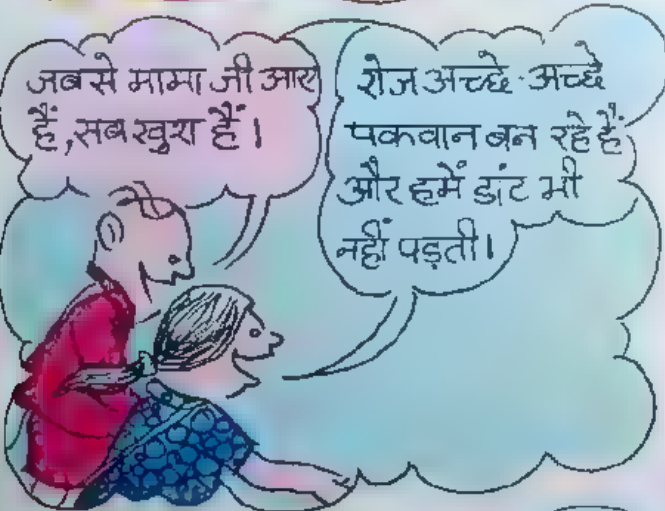 जबसे मामा जी आए
हैं, सब खुश हैं।
रोज अच्छे-अच्छे
पकवान बन रहे हैं
और हमें डांट भी
नहीं पड़ती।